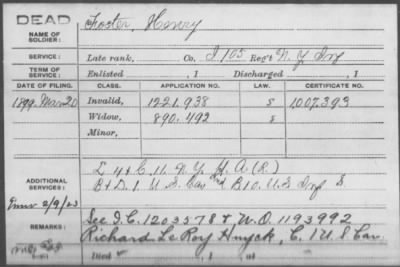 DEAD
Foster, Henry
NAME OF SOLDIER:
SERVICE: Late rank, Co. I 105 Reg't N.Y. Inf
TERM OF SERVICE: Enlisted , 1 Discharged , 1
DATE OF FILING. CLASS. APPLICATION NO. LAW. CERTIFICATE NO.
1899. Mar 20 Invalid, 1221.938 S 1007.393
Widow, 890.492 S
Minor,
L 4 & C. 11. N.Y. H.A. (R.)
ADDITIONAL SERVICES: B & D. 1. U.S. Cav and B 10. U.S. Inf S.
2/9/23
REMARKS: See I.C. 1203578 & W.O. 1193992
Richard LeRoy Huyck, C. 1 U S Cav.
Died , 1 , at